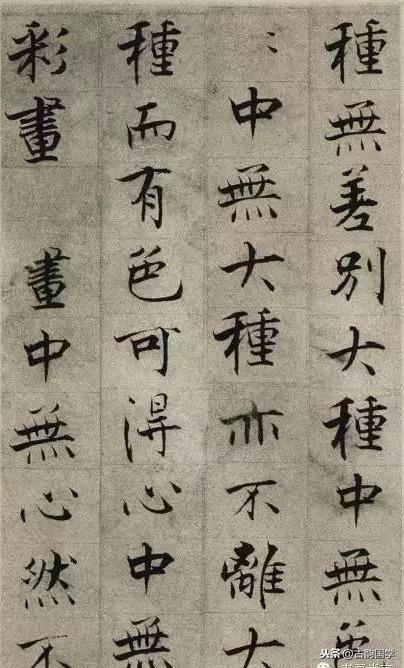 種無差別大種中無色
〻中無大種亦不離大
種而有色可得心中無
彩畫 畫中無心然不
头条@古韵国学